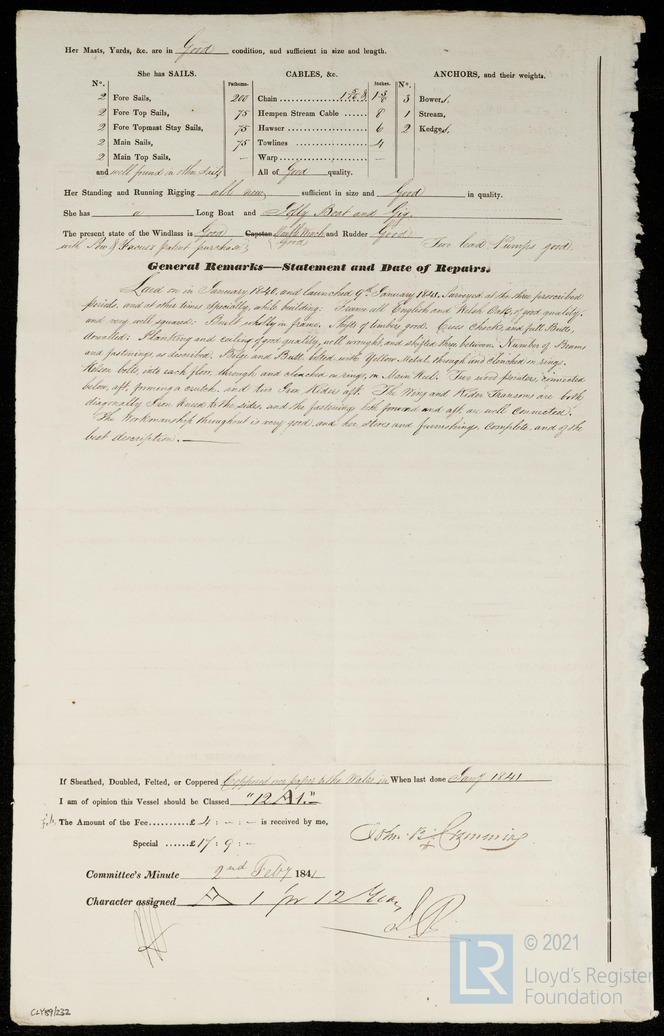 Her Masts, Yards, &c. are in Good condition, and sufficient in size and length.
She has SAILS. CABLES, &c. ANCHORS, and their weights.
No. Fathoms. Inches. No.
2 Fore Sails, 200 Chain 1 3/8 3 Bowers,
2 Fore Top Sails, 75 Hempen Stream Cable 8 1 Stream,
2 Fore Topmast Stay Sails, 75 Hawser 6 2 Kedges,
2 Main Sails, 75 Towlines 4
2 Main Top Sails, — Warp —
and well found in other Sails All of Good quality.
Her Standing and Running Rigging all new sufficient in size and Good in quality.
She has a Long Boat and Jolly Boat and Gig.
The present state of the Windlass is Good Capstan and Rudder Good Two lead Pumps good
with patent purchase good
General Remarks—Statement and Date of Repairs.
Laid on in January 1840, and launched 9th January 1841. Surveyed at the three prescribed
periods, and at other times specially, while building. Frame all English and Welsh Oak, of good quality,
and very well squared. Built wholly in frame. Shift of timbers good. Cross Chocks, and full Butts,
dowelled. Planking and ceiling of good quality, well wrought, and shifted three between. Number of Beams
and fastenings as described. Bilge and Butt bolted with Yellow Metal through and clenched on rings.
Keison bolts, into each floor, through, and clenched on rings, on Main Keel. Two wood pointers, connected
below, aft, forming a crutch, and two Iron Riders aft. The Wing and Rider Transoms are both
diagonally Iron kneed to the sides, and the fastenings both forward and aft, are well connected.
The Workmanship throughout is very good, and her stores and furnishings, Complete, and of the
best description.
If Sheathed, Doubled, Felted, or Coppered Coppered over paper to the Wales in When last done Jany 1841
I am of opinion this Vessel should be Classed "12 A 1."
The Amount of the Fee......£ 4 : - : - is received by me,
Special ......£ 17 : 9 : -
Committee's Minute 2nd Feby 1841
Character assigned A 1 for 12 Years
CLY59/232
LR
© 2021
Lloyd's Register
Foundation